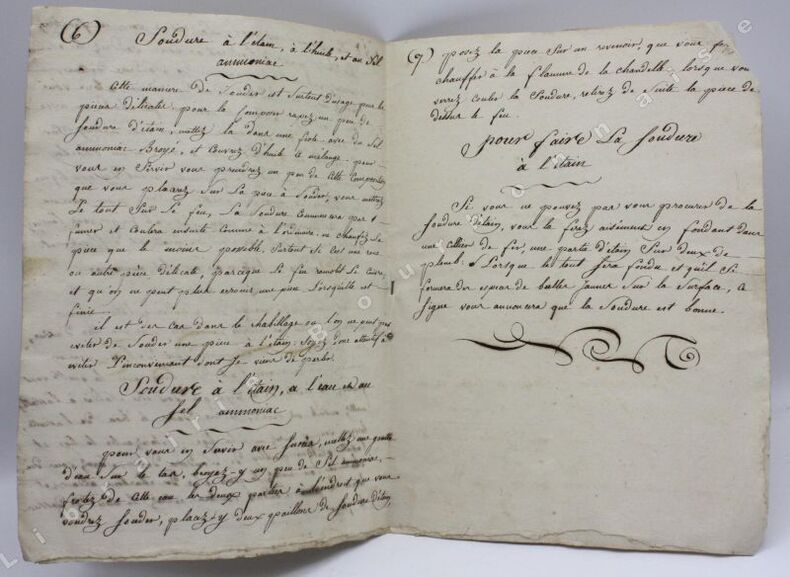 (6)
Soudure à l'étain, à l'huile, et au Sel
ammoniac
Cette maniere de Souder est Surtout d'usage pour les
pieces délicates. pour la composer rapez un peu de
Soudure d'étain, mettez la dans une fiole avec du Sel
ammoniac Broyé, et couvrez d'huile ce mélange. pour
vous en Servir vous prendrez un peu de Cette Composition
que vous placerez Sur la piece à Souder, vous mettrez
Le tout Sur Le feu, La Soudure Commencera par
fumer et Coulera ensuite Comme à l'ordinaire. ne chauffez la
piece que le moins possible, Surtout Si C'est une roue
ou autre piece délicate, parceque Le feu Le Cuivre,
et qu'on ne peut plus une piece Lorsqu'elle est
finie.
il est des Cas dans le rhabillage où l'on ne peut pas
eviter de Souder une piece à l'étain. Soyez donc attentif à
eviter l'inconvenient dont Je viens de parler.
Soudure à l'étain, a l'eau et au
Sel ammoniac
pour vous en Servir avec Succès, mettez une goutte
d'eau Sur le tas, broyez-y un peu de Sel ammoniac,
frotez de Cette eau les deux parties à l'endroit que vous
voudrez Souder, placez-y deux paillons de Soudure d'étain,
(7)
posez la piece Sur un revenoir, que vous
chauffer à la flamme de la chandelle. lorsque vous
verrez couler la Soudure, retirez de Suite la piece de
dessus le feu.
pour faire La Soudure
à l'étain
Si vous ne pouvez pas vous procurer de la
Soudure d'étain, vous la ferez aisément en fondant dans
une Cuiller de fer, une partie d'étain Sur deux de
plomb. Lorsque le tout Sera fondu et qu'il Se
formera des especes de bulles jaunes Sur la Surface, Ce
Signe vous annoncera que la Soudure est bonne.